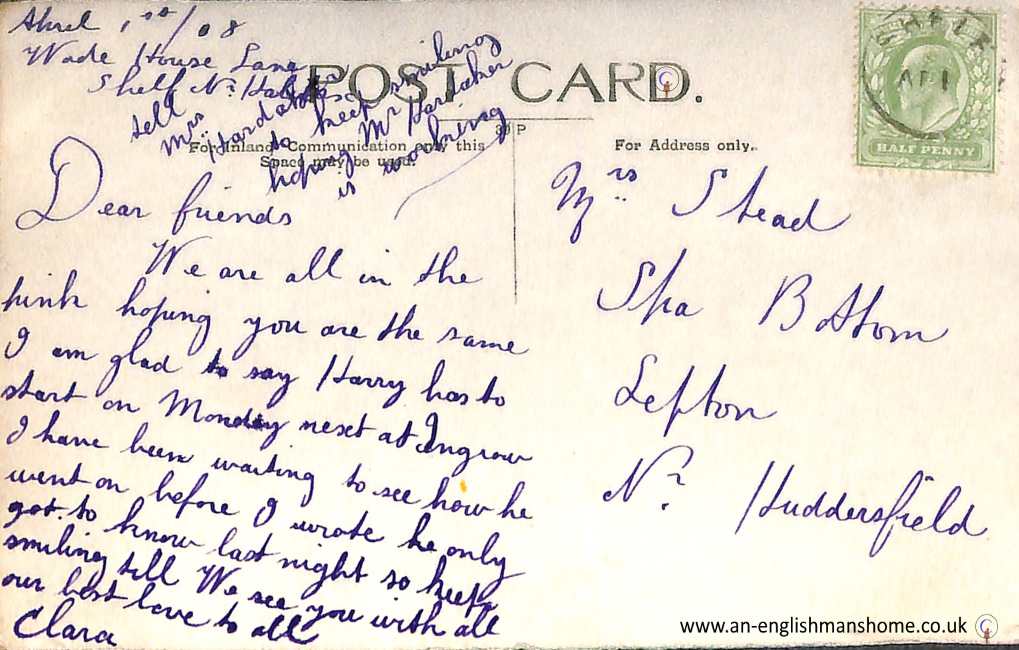 Ahrel 1st/08
Wade House Lane
Shelf Nr Halifax
POST CARD.
tell
Mrs Hardaker
to keep smiling
hoping Mr Hardaker
is working
For Inland Communication only this
Space may be used.
39 P
For Address only.
Dear friends
We are all in the
pink hoping you are the same
I am glad to say Harry has to
start on Monday next at Ingrow
I have been waiting to see how he
went on before I wrote he only
got to know last night so keep
smiling till We see you with all
our best love to all
Clara
SHELF
AP 1
HALF PENNY
Mrs Stead
Spa Bottom
Lepton
Nr Huddersfield
www.an-englishmanshome.co.uk